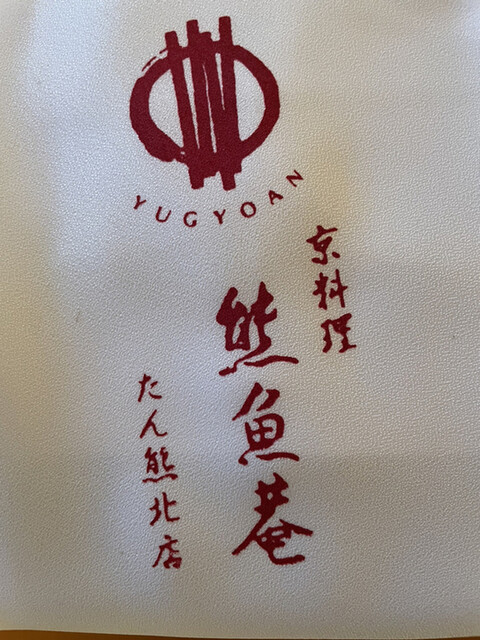 YUGYOAN
京料理
熊魚菴
たん熊北店